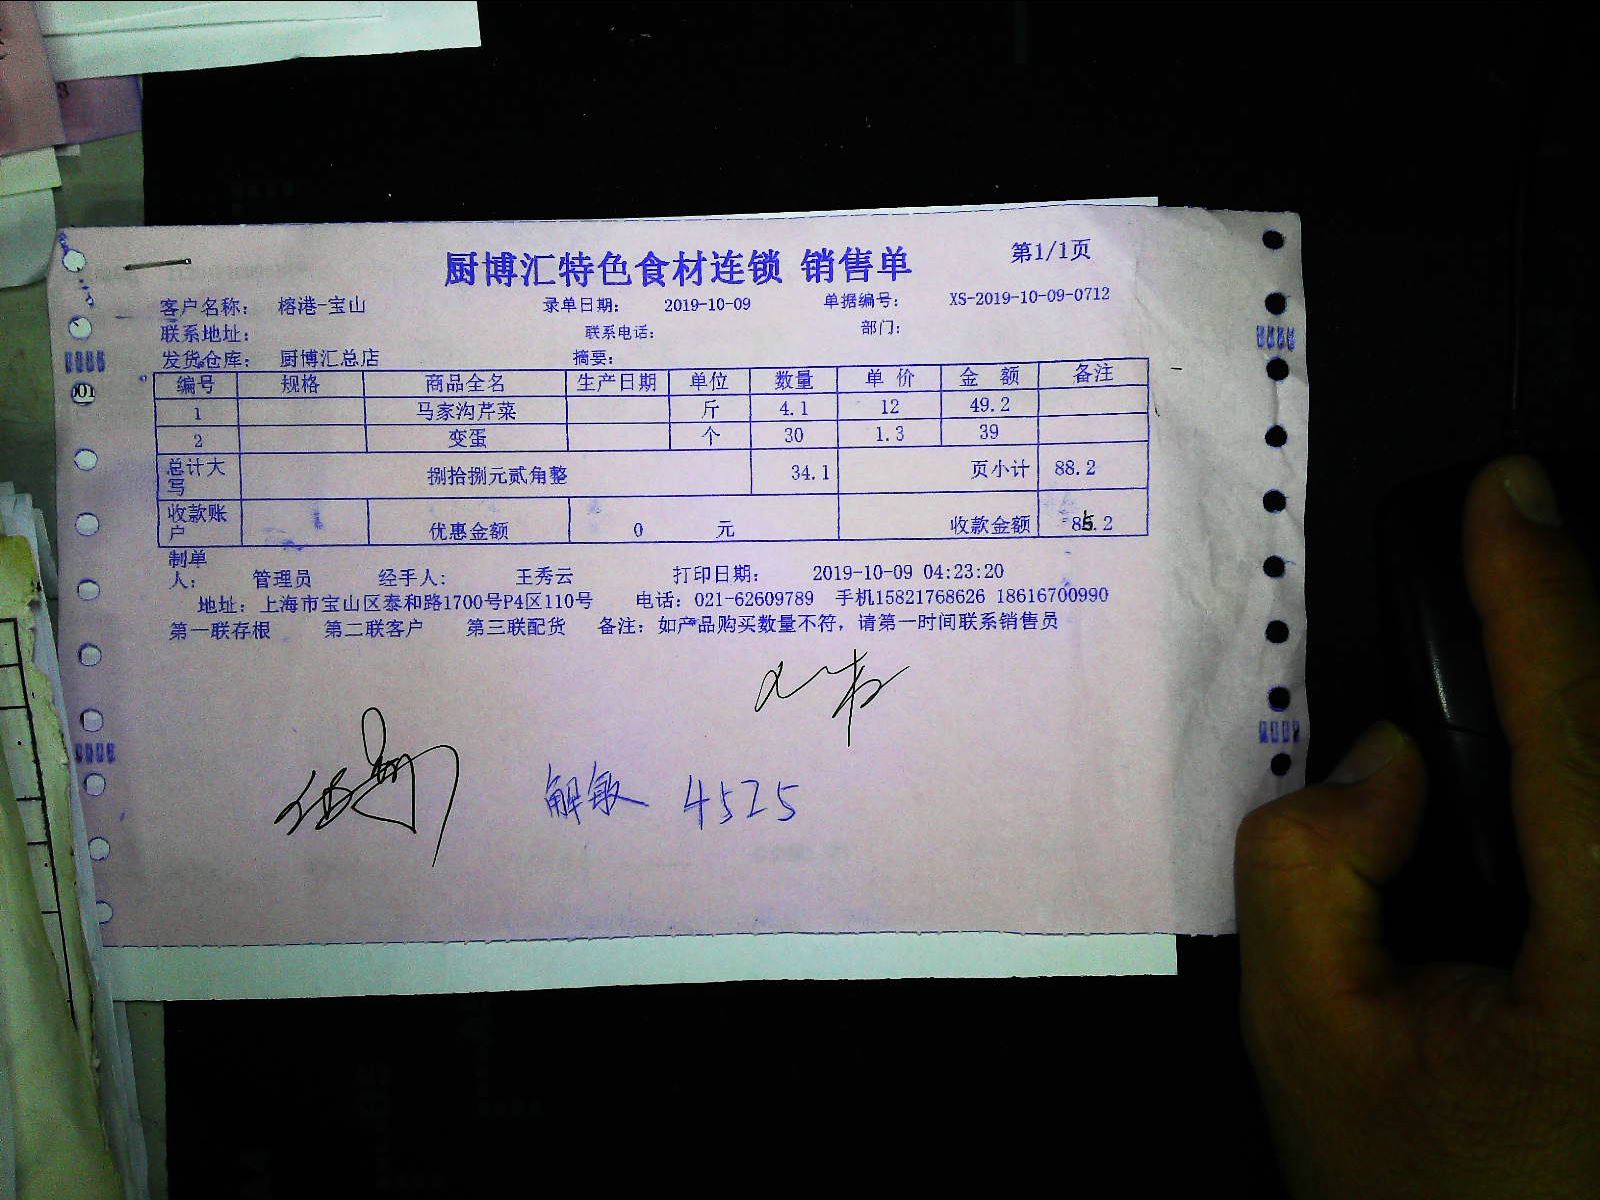 厨博汇特色食材连锁 销售单 第1/1页
客户名称： 榕港-宝山 录单日期： 2019-10-09 单据编号： XS-2019-10-09-0712
联系地址： 联系电话： 部门：
发货仓库： 厨博汇总店 摘要：
编号 规格 商品全名 生产日期 单位 数量 单 价 金 额 备注
1 马家沟芹菜 斤 4.1 12 49.2
2 变蛋 个 30 1.3 39
总计大写 捌拾捌元贰角整 34.1 页小计 88.2
收款账户 优惠金额 0 元 收款金额 .2
制单人： 管理员 经手人： 王秀云 打印日期： 2019-10-09 04:23:20
地址：上海市宝山区泰和路1700号P4区110号 电话：021-62609789 手机15821768626 18616700990
第一联存根 第二联客户 第三联配货 备注：如产品购买数量不符，请第一时间联系销售员
解敏 4525